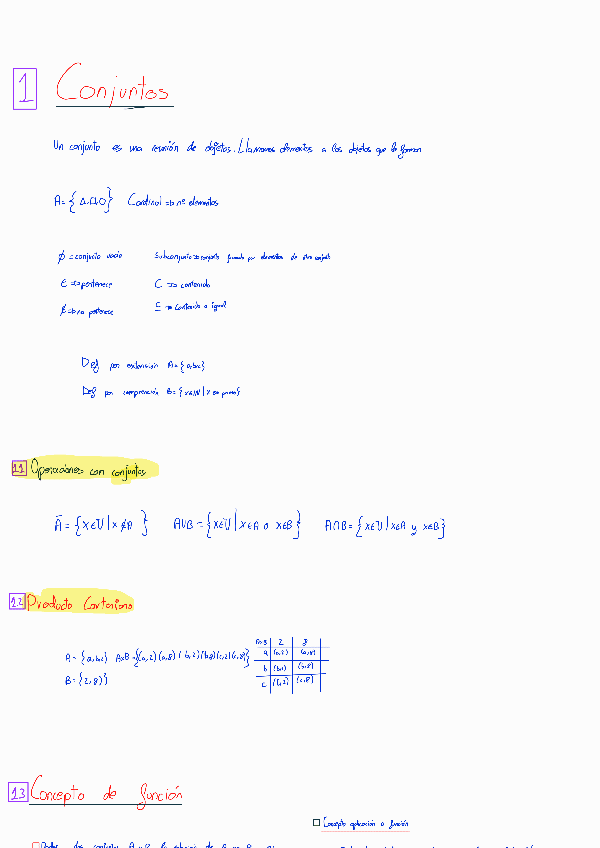 1 Conjuntos
Un conjunto es una reunión de objetos. Llamamos elementos a los objetos que lo forman
A={△,□,○} Cardinal ⇒ nº elementos
∅ = conjunto vacío Subconjunto ⇒ conjunto formado por elementos de otro conjunto
∈ ⇒ pertenece ⊂ ⇒ contenido
∉ ⇒ no pertenece ⊆ ⇒ contenido o igual
Def por extensión A={a,b,c}
Def por comprensión B={x∈N | x es primo}
1.1 Operaciones con conjuntos
Ā={x∈U | x∉A} A∪B={x∈U | x∈A o x∈B} A∩B={x∈U | x∈A y x∈B}
1.2 Producto Cartesiano
A={a,b,c} A×B={(a,2)(a,8)(b,2)(b,8)(c,2)(c,8)}
B={2,8}
2 8
a (a,2) (a,8)
b (b,2) (b,8)
c (c,2) (c,8)
1.3 Concepto de función
Concepto aplicación o función